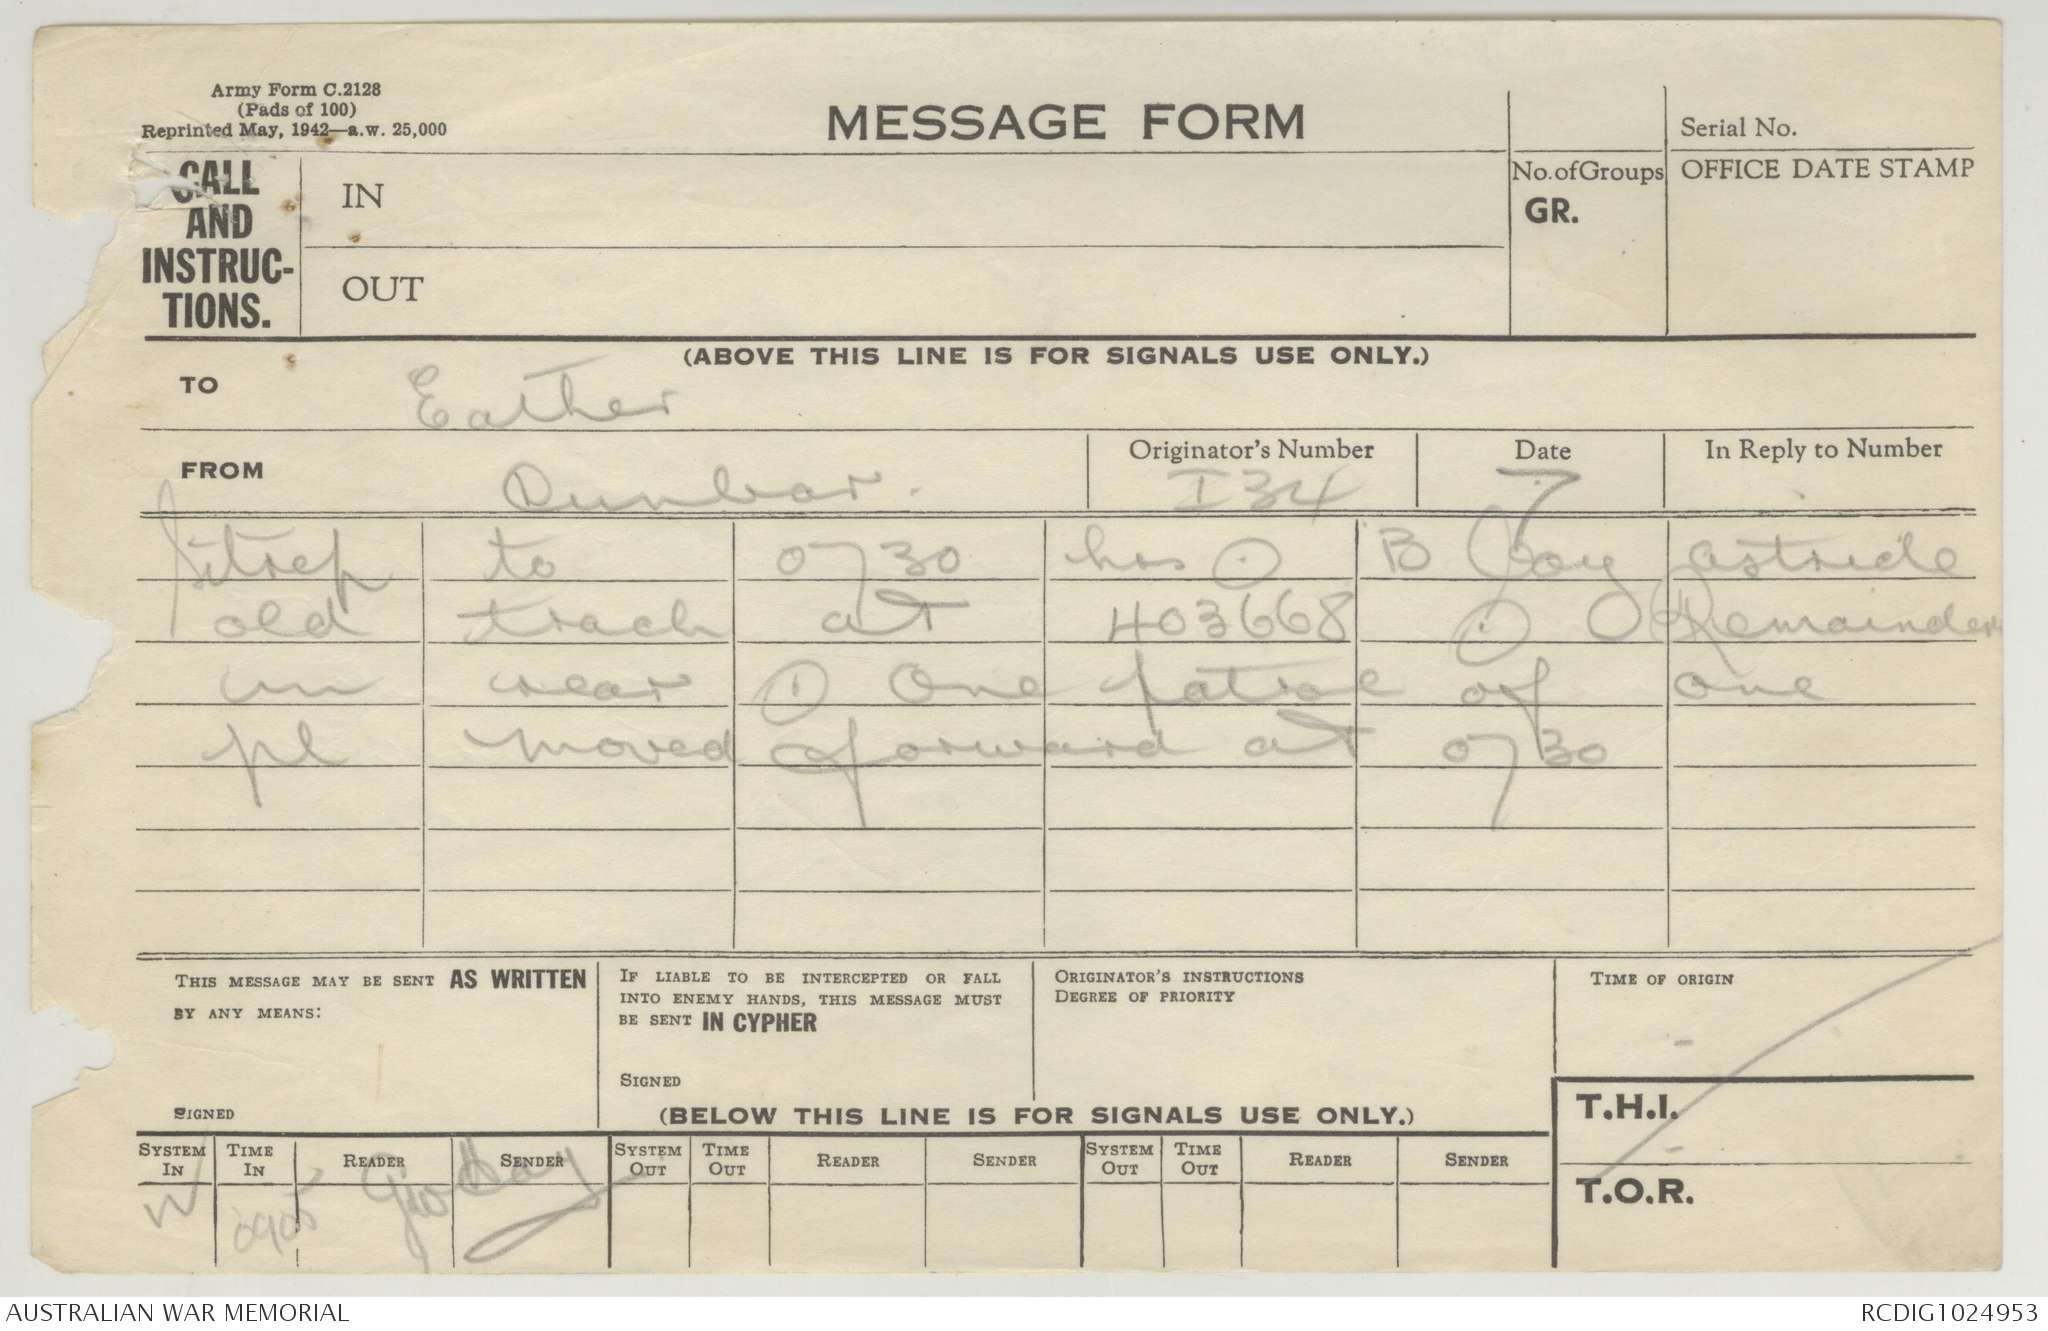 Army Form C.2128
(Pads of 100)
Reprinted May, 1942—a.w. 25,000
MESSAGE FORM
Serial No.
CALL AND INSTRUC-TIONS.
IN
No. of Groups
GR.
OFFICE DATE STAMP
OUT
(ABOVE THIS LINE IS FOR SIGNALS USE ONLY.)
TO Eather
FROM Dunbar.
Originator's Number I34
Date 7
In Reply to Number
Sitrep to 0730 hrs ⊙ B Coy astride
old track at 403668 ⊙ Remainder
in rear ⊙ One patrol of one
pl moved forward at 0730
THIS MESSAGE MAY BE SENT AS WRITTEN
BY ANY MEANS:
SIGNED
IF LIABLE TO BE INTERCEPTED OR FALL
INTO ENEMY HANDS, THIS MESSAGE MUST
BE SENT IN CYPHER
SIGNED
ORIGINATOR'S INSTRUCTIONS
DEGREE OF PRIORITY
TIME OF ORIGIN
T.H.I.
T.O.R.
(BELOW THIS LINE IS FOR SIGNALS USE ONLY.)
SYSTEM IN TIME IN READER SENDER SYSTEM OUT TIME OUT READER SENDER SYSTEM OUT TIME OUT READER SENDER
0905
AUSTRALIAN WAR MEMORIAL
RCDIG1024953